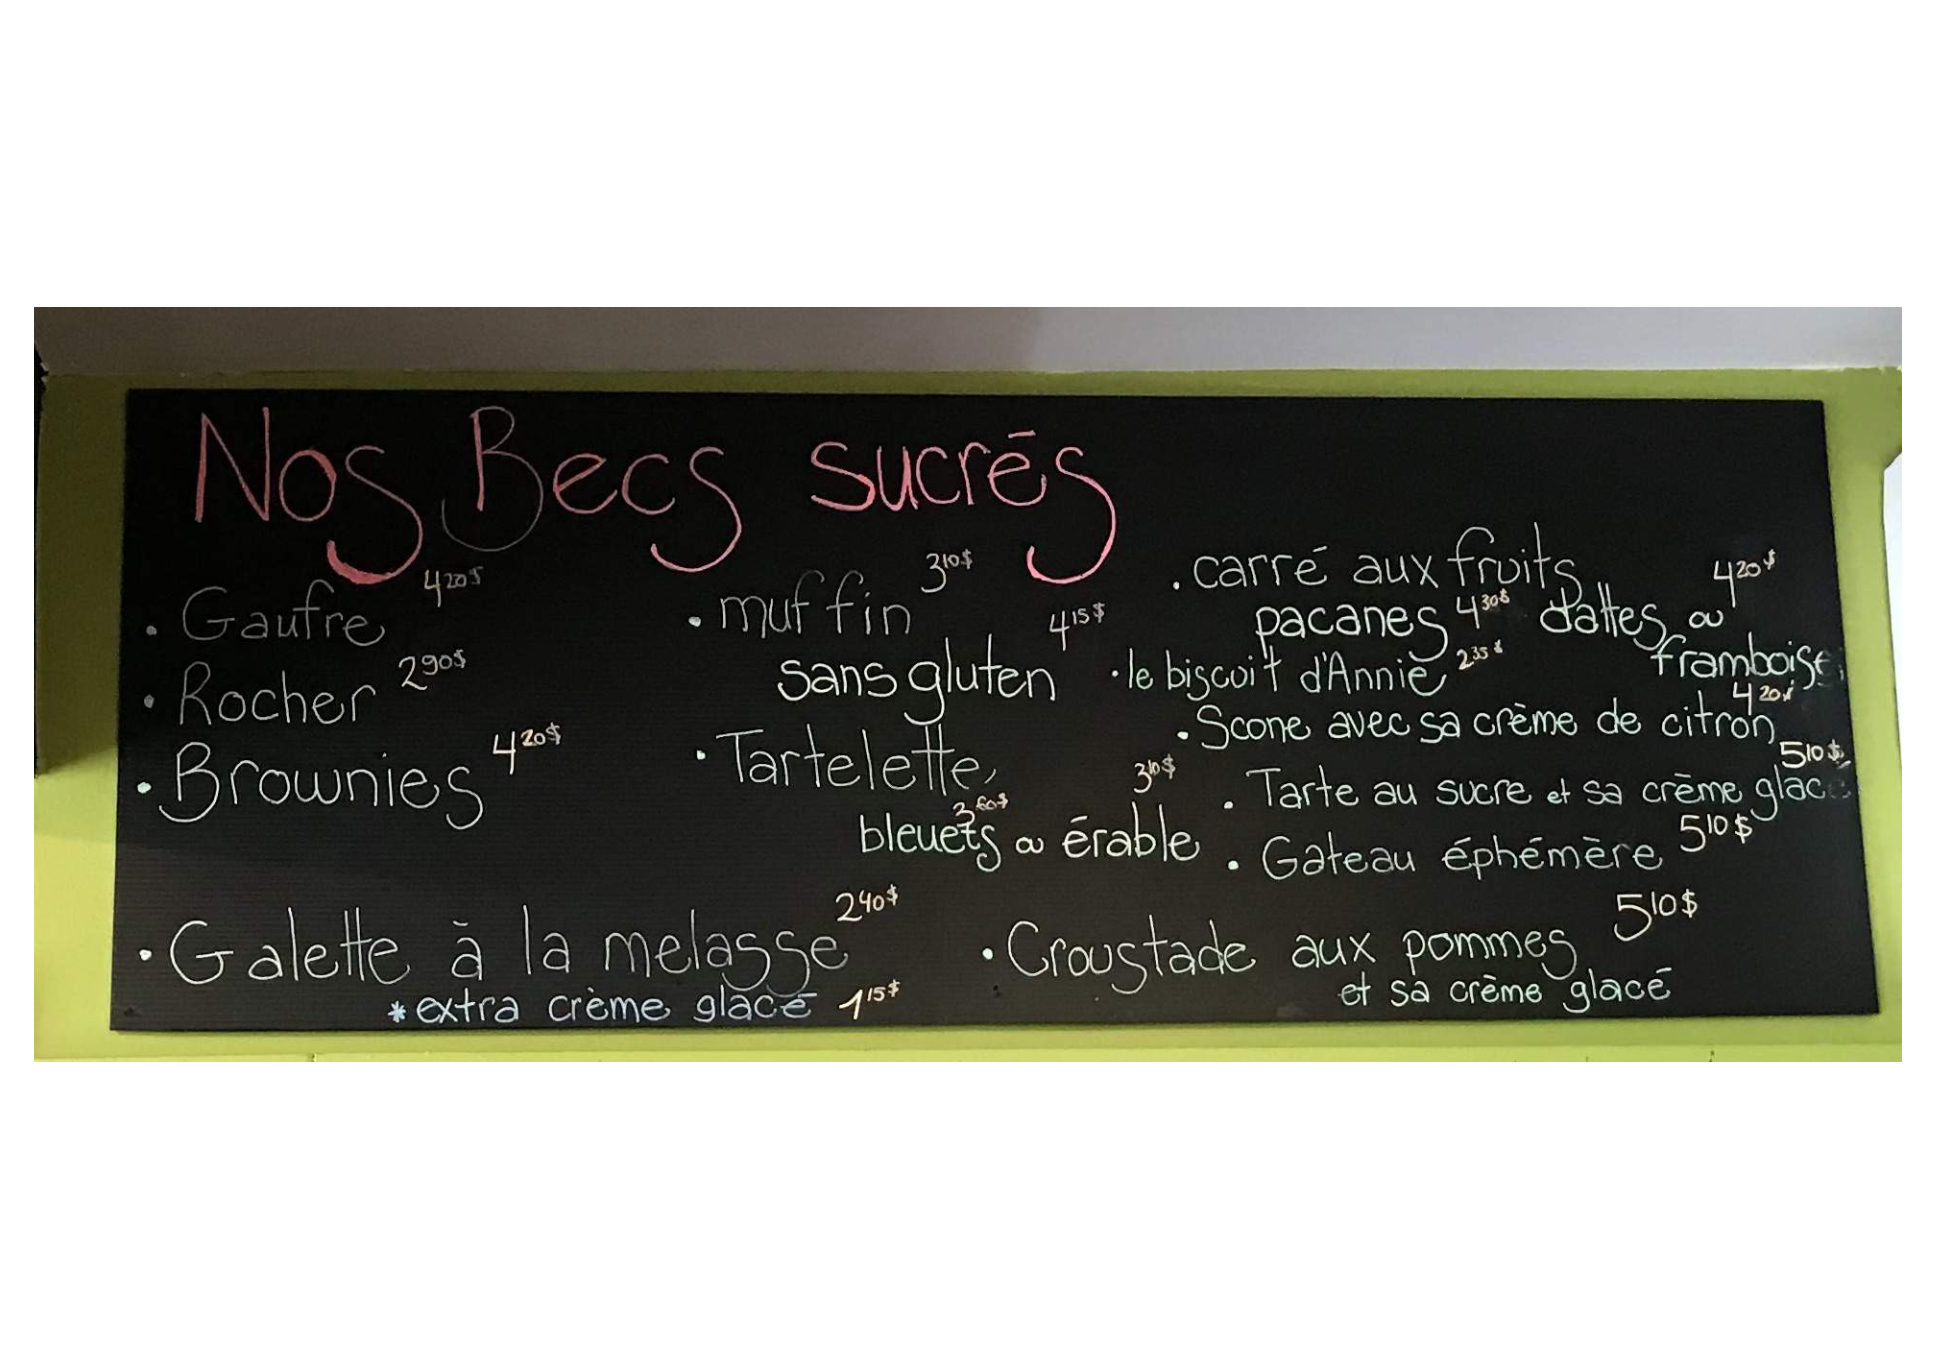 Nos Becs sucrés
• Gaufre 4 20$
• Rocher 2 90$
• Brownies 4 20$
• muffin 3 10$
sans gluten 4 15$
• Tartelette,
bleuets 3 60$ ou érable 3 10$
• carré aux fruits
pacanes 4 30$ dattes ou 4 20$
framboise
• le biscuit d'Annie 2 35$
• Scone avec sa crème de citron 4 20$
• Tarte au sucre et sa crème glacé 5 10$
• Gateau éphémère 5 10$
• Galette à la melasse 2 40$
* extra crème glacé 1 15$
• Croustade aux pommes 5 10$
et sa crème glacé